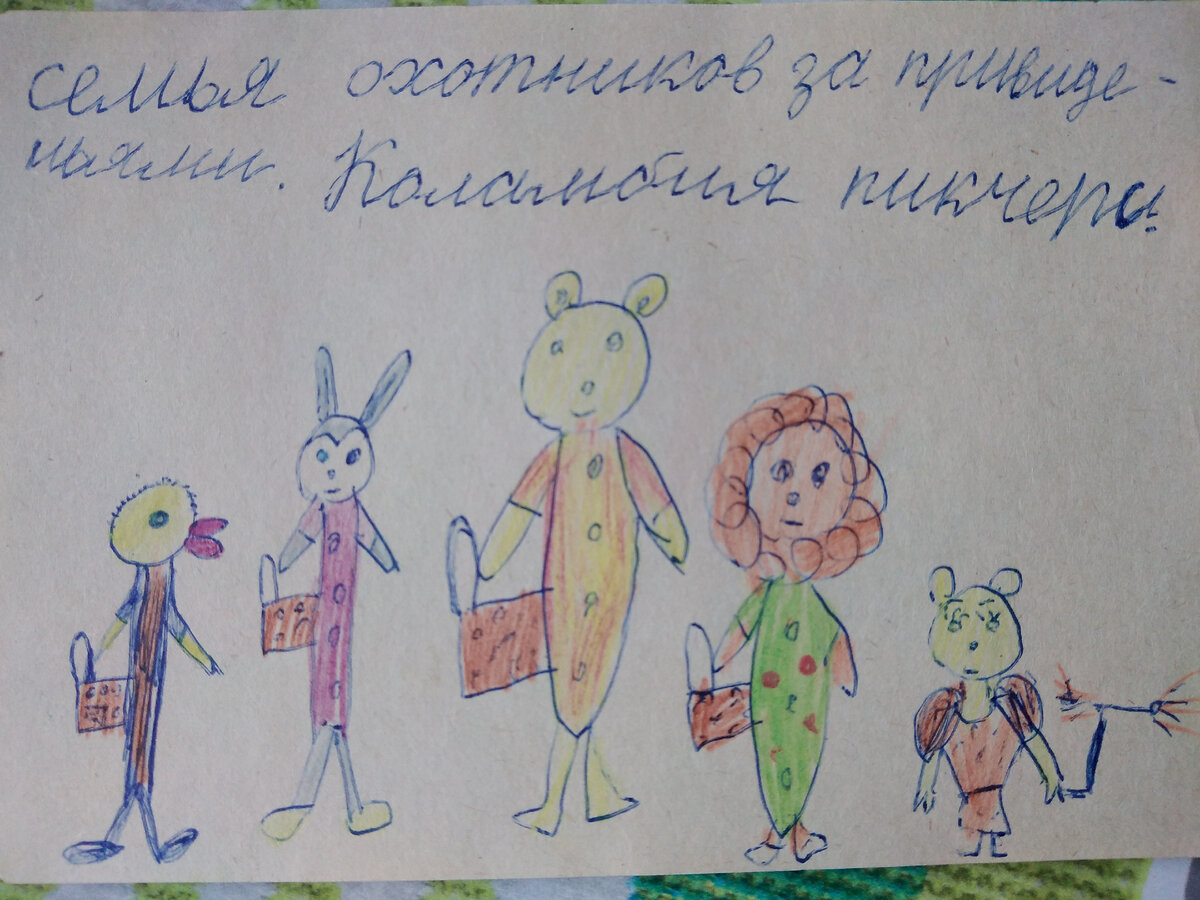 семья охотников за привиде-
ньями. Коламбия пикчерс.